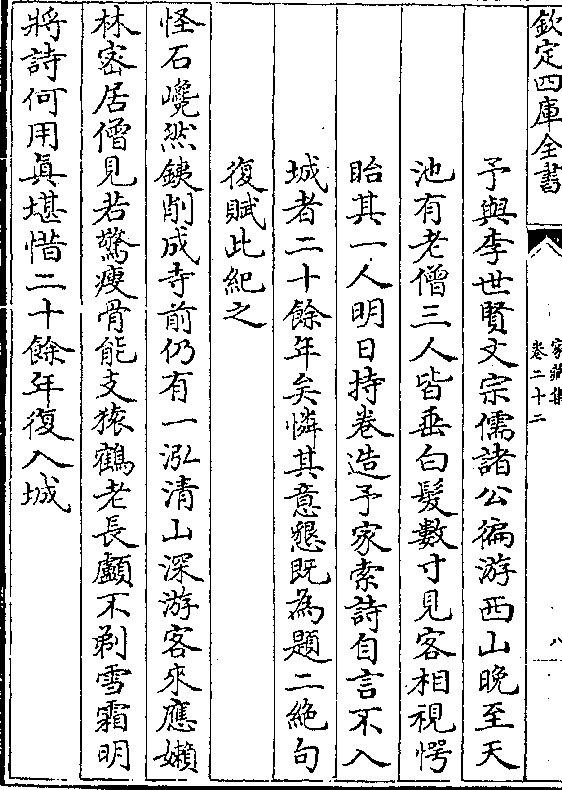 欽定四庫全書
家藏集
卷二十二
八
予與李世賢文宗儒諸公徧游西山晚至天
池有老僧三人皆垂白髮數寸見客相視愕
眙其一人明日持卷造予家索詩自言不入
城者二十餘年矣憐其意懇既為題二絶句
復賦此紀之
怪石巉然鐵削成寺前仍有一泓清山深游客來應嬾
林密居僧見若驚瘦骨能支猿鶴老長顱不剃雪霜明
將詩何用真堪惜二十餘年復入城